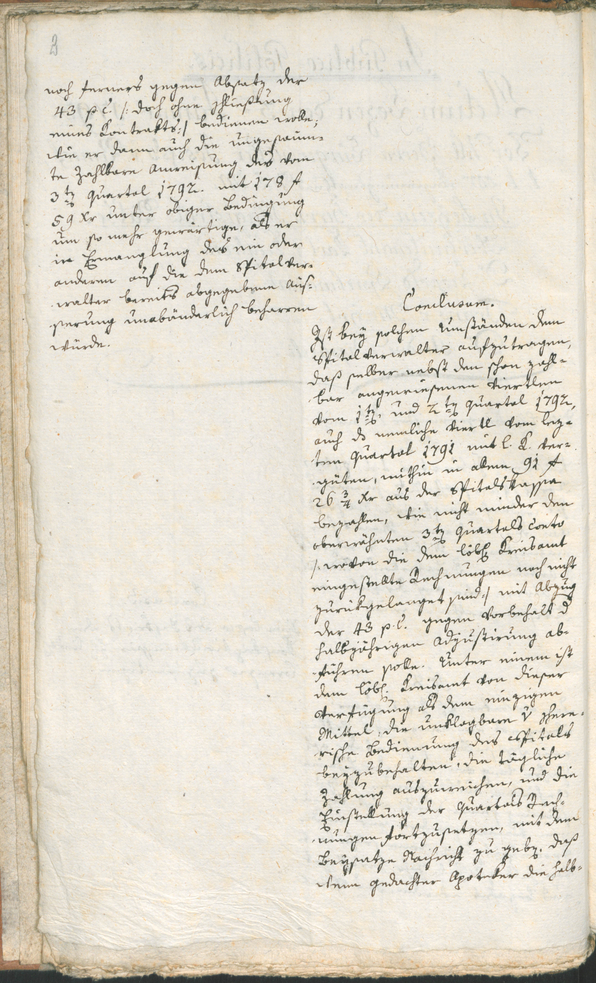 noch ferners gegen Absatz der
43 p C. /: doch ohne Schließung
eines Kontrakts :/ bedienen wolle;
wie er dann auch die ungesaum-
te zahlbare Anweisung des vom
3ten Quartal 1792. mit 178 f
59 Xr unter obiger Bedingung
um so mehr gewärtige, als er
in Ermanglung des ein oder
anderen auf die dem Spitalver-
walter bereits abgegebene Aus-
serung unabänderlich beharren
würde.
Conclusum.
Ist bey solchen Umständen dem
Spitalverwalter aufzutragen,
daß selber nebst den schon zahl-
bar angewiesenen Viertlen
vom 1ten und 2ten Quartal 1792,
auch das nemliche Viertl vom lez-
ten Quartal 1791 mit l. K. ver-
güten, mithin in allem 91 f
26 3/4 Xr aus der Spitalskassa
bezahlen, wie nicht minder den
oberwähnten 3ten Quartals Conto
/: wovon die dem löbl. Kreisamt
eingestellte Rechnungen noch nicht
zurükgelanget sind :/ mit Abzug
der 43 p C. gegen Vorbehalt d
halbjährigen Adjustirung ab-
führen solle. Unter einem ist
dem löbl. Kreisamt von dieser
Verfügung als dem einzigen
Mittel, die unklagbare
rische Bedienung des Spitals
beyzubehalten, die tägliche
Zahlung auszuweichen, und die
Einstellung der Quartals Rech-
nungen fortzusetzen, mit dem
Beysatze Nachricht zu geben, daß
wenn gedachter Apoteker die halb-